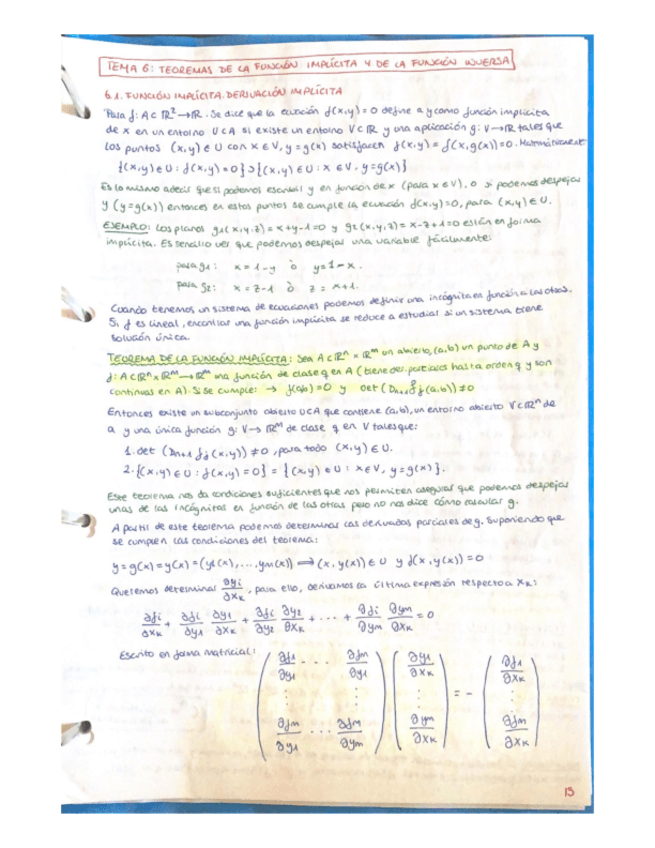 TEMA 6: TEOREMAS DE LA FUNCIÓN IMPLÍCITA Y DE LA FUNCIÓN INVERSA
6.1. FUNCIÓN IMPLÍCITA. DERIVACIÓN IMPLÍCITA
Para f: A⊂ℝ²→ℝ. Se dice que la ecuación f(x,y)=0 define a y como función implícita
de x en un entorno U⊂A si existe un entorno V⊂ℝ y una aplicación g: V→ℝ tales que
los puntos (x,y)∈U con x∈V, y=g(x) satisfacen f(x,y)=f(x,g(x))=0. Matemáticamente
{(x,y)∈U: f(x,y)=0}⊃{(x,y)∈U: x∈V, y=g(x)}
Es lo mismo a decir que si podemos escribir y en función de x (para x∈V), o si podemos despejar
y (y=g(x)) entonces en estos puntos se cumple la ecuación f(x,y)=0, para (x,y)∈U.
EJEMPLO: Los planos g1(x,y,z)=x+y-1=0 y g2(x,y,z)=x-z+1=0 están en forma
implícita. Es sencillo ver que podemos despejar una variable fácilmente:
para g1: x=1-y ò y=1-x.
para g2: x=z-1 ò z=x+1.
Cuando tenemos un sistema de ecuaciones podemos definir una incógnita en función a las otras.
Si f es lineal, encontrar una función implícita se reduce a estudiar si un sistema tiene
solución única.
TEOREMA DE LA FUNCIÓN IMPLÍCITA: Sea A⊂ℝⁿ×ℝᵐ un abierto, (a,b) un punto de A y
f: A⊂ℝⁿ×ℝᵐ→ℝᵐ una función de clase q en A (tiene der. parciales hasta orden q y son
continuas en A). Si se cumple: → f(a,b)=0 y det(Dn+j f(a,b))≠0
Entonces existe un subconjunto abierto U⊂A que contiene (a,b), un entorno abierto V⊂ℝⁿ de
a y una única función g: V→ℝᵐ de clase q en V tales que:
1. det(Dn+j fj(x,y))≠0, para todo (x,y)∈U.
2. {(x,y)∈U: f(x,y)=0} = {(x,y)∈U: x∈V, y=g(x)}.
Este teorema nos da condiciones suficientes que nos permiten asegurar que podemos despejar
unas de las incógnitas en función de las otras pero no nos dice cómo calcular g.
A partir de este teorema podemos determinar las derivadas parciales de g. Suponiendo que
se cumplen las condiciones del teorema:
y=g(x)=y(x)=(y1(x),...,ym(x)) ⟹ (x,y(x))∈U y f(x,y(x))=0
Queremos determinar ∂yi/∂xk, para ello, derivamos la última expresión respecto a xk:
∂fi/∂xk + ∂fi/∂y1 ∂y1/∂xk + ∂fi/∂y2 ∂y2/∂xk + ··· + ∂fi/∂ym ∂ym/∂xk = 0
Escrito en forma matricial:
( ∂f1/∂y1 ··· ∂fm/∂y1 ) ( ∂y1/∂xk ) = - ( ∂f1/∂xk )
⋮ ⋮ ⋮ ⋮
( ∂fm/∂y1 ··· ∂fm/∂ym ) ( ∂ym/∂xk ) ( ∂fm/∂xk )
13